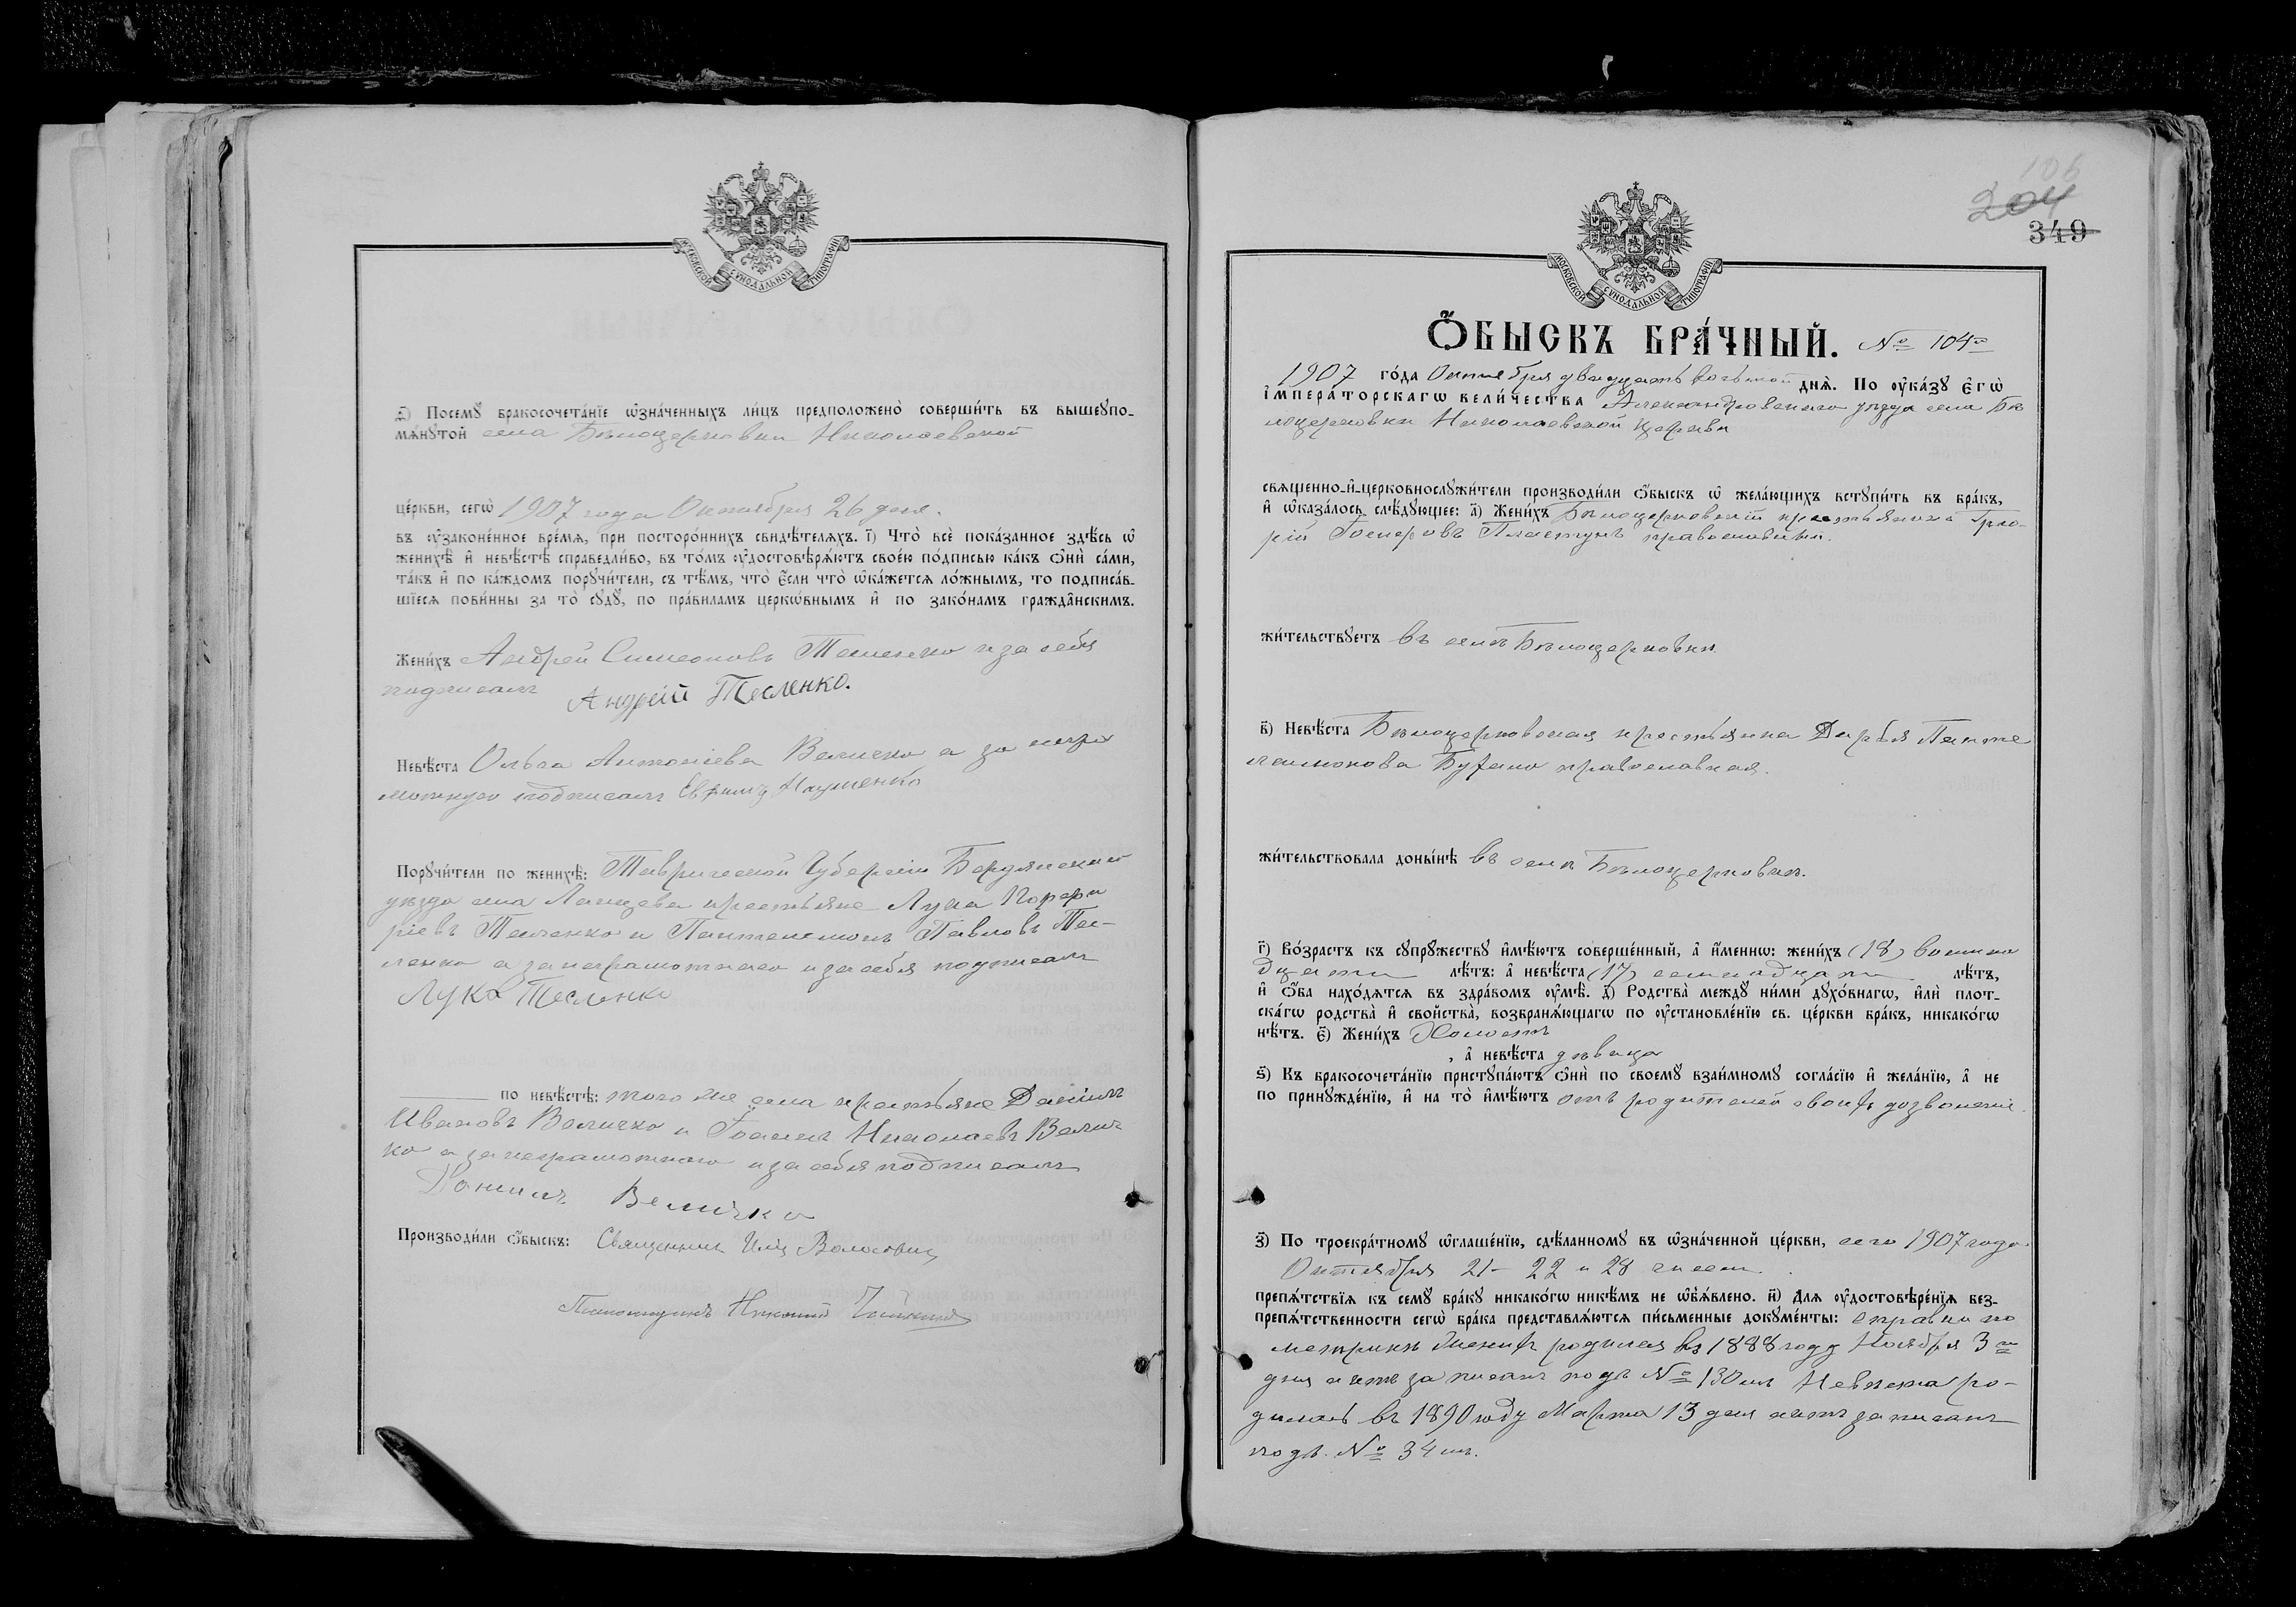 МОСКОВСКОЙ СѴНОДАЛЬНОЙ ТИПОГРАФІИ
ѳ҃) Посемꙋ̀ бракосочета́нїе ѡ҆зна́ченныхъ ли́цъ предположено̀ соверши́ть въ вышеꙋпо-
мѧ́нꙋтой села Бѣлоцерковки Николаевской
це́ркви, сегѡ̀ 1907 года Октября 26 дня.
въ ᲂу҆зако́не́нное вре́мѧ, при посторо́ннихъ свидѣ́телѧхъ. і҃) Что̀ всѐ пока́занное здѣ́сь ѡ҆
женихѣ̀ и҆ невѣ́стѣ справедли́во, въ то́мъ ᲂу҆достовѣрѧ́ютъ свое́ю по́дписью ка́къ ѻ҆нѝ са́ми,
та́къ и҆ по ка́ждомъ порꙋчи́тели, съ тѣ́мъ, что̀ є҆́сли что̀ ѡ҆ка́жетсѧ ло́жнымъ, то подписа́в-
шїесѧ пови́нны за то̀ сꙋдꙋ̀, по пра́виламъ церко́внымъ и҆ по зако́намъ гражда́нскимъ.
Жени́хъ Андрей Симеоновъ Тесленко и за себя
подписалъ Андрей Тесленко.
Невѣ́ста Ольга Антоніева Величко а за негра
мотную подписалъ Евфимъ Науменко
Порꙋчи́тели по женихѣ̀: Таврической Губерніи Бердянскаго
уѣзда села крестьяне Лука Порфи
ріевъ Тесленко и Пантелеимонъ Павловъ Тес-
ленко а за неграмотнаго и за себя подписалъ
Лука Тесленко
по невѣ́стѣ: того же села крестьяне Даніилъ
Ивановъ Величко и Іоаннъ Николаевъ Велич
ко а за неграмотнаго и за себя подписалъ
Данилъ Величко
Производи́ли ѻ҆́быскъ: Священникъ Илія Волосовичъ
Псаломщикъ
106
204
349
МОСКОВСКОЙ СѴНОДАЛЬНОЙ ТИПОГРАФІИ
Ѻ҆́БЫСКЪ БРА́ЧНЫЙ. № 104й
1907 го́да Октября двадцать восьмой днѧ̀. По ᲂу҆ка́зꙋ Є҆гѡ̀
І҆мпера́торскагѡ вели́чества Александровскаго уѣзда села Бѣ
лоцерковки Николаевской церкви
свѧще́нно-и҆-церковнослꙋжи́тели производи́ли ѻ҆́быскъ ѡ҆ жела́ющихъ встꙋпи́ть въ бра́къ,
и҆ ѡ҆каза́лось слѣ́дꙋющее: а҃) Жени́хъ Бѣлоцерковскій крестьянинъ Гри-
рій Пластунъ православный.
жи́тельствꙋетъ въ селѣ Бѣлоцерковки
в҃) Невѣ́ста Бѣлоцерковская крестьянка Дарья Панте
леимонова православная.
жи́тельствовала доны́нѣ въ селѣ Бѣлоцерковки.
г҃) Во́зрастъ къ сꙋпрꙋ́жествꙋ и҆мѣ́ютъ соверше́нный, а҆ и҆́менно: жени́хъ (18) восемна
дцати лѣ́тъ: а҆ невѣ́ста (17) семнадцати лѣ́тъ,
и҆ ѻ҆́ба нахо́дѧтсѧ въ здра́вомъ ᲂу҆мѣ̀. д҃) Родства̀ междꙋ ни́ми дꙋхо́внагѡ, и҆лѝ плот-
ска́гѡ родства̀ и҆ свойства̀, возбранѧ́ющагѡ по ᲂу҆становле́нїю св. це́ркви бра́къ, никако́гѡ
нѣ́тъ. є҃) Жени́хъ Холостъ
, а҆ невѣ́ста дѣвица
ѕ҃) Къ бракосочета́нїю пристꙋпа́ютъ ѻ҆нѝ по своемꙋ̀ взаи́мномꙋ согла́сїю и҆ жела́нїю, а҆ не
по принꙋжде́нїю, и҆ на то̀ и҆мѣ́ютъ отъ родителей своихъ дозволеніе
з҃) По троекра́тномꙋ ѡ҆глаше́нїю, сдѣ́ланномꙋ въ ѡ҆зна́ченной це́ркви, сего 1907 года
Октября 21- 22 и 28 чиселъ.
препѧ́тствїѧ къ семꙋ̀ бра́кꙋ никако́гѡ никѣ́мъ не ѡ҆б̾ѧ́влено. и҃) Длѧ ᲂу҆достовѣре́нїѧ без-
препѧ́тственности сегѡ̀ бра́ка представлѧ́ютсѧ пи́сьменные докꙋме́нты: справки по
метрикѣ Женихъ родился въ 1888 году Ноября 3го
дня актъ записанъ подъ № 130мъ Невѣста ро-
дилась въ 1890 году Марта 13 дня актъ записанъ
подъ № 34мъ.